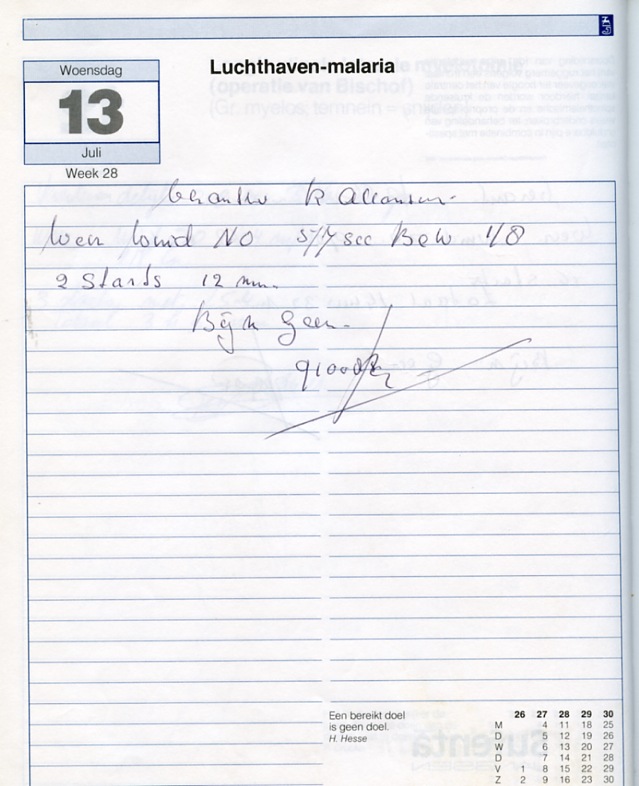 Woensdag
13
Juli
Week 28
Luchthaven-malaria
(operatie van Bischof)
Weer wind NO 5/7 sec Bew 1/8
2 Starts 12 min.
Bijz Geen
Een bereikt doel
is geen doel.
H. Hesse
26 27 28 29 30
M 4 11 18 25
D 5 12 19 26
W 6 13 20 27
D 7 14 21 28
V 1 8 15 22 29
Z 2 9 16 23 30